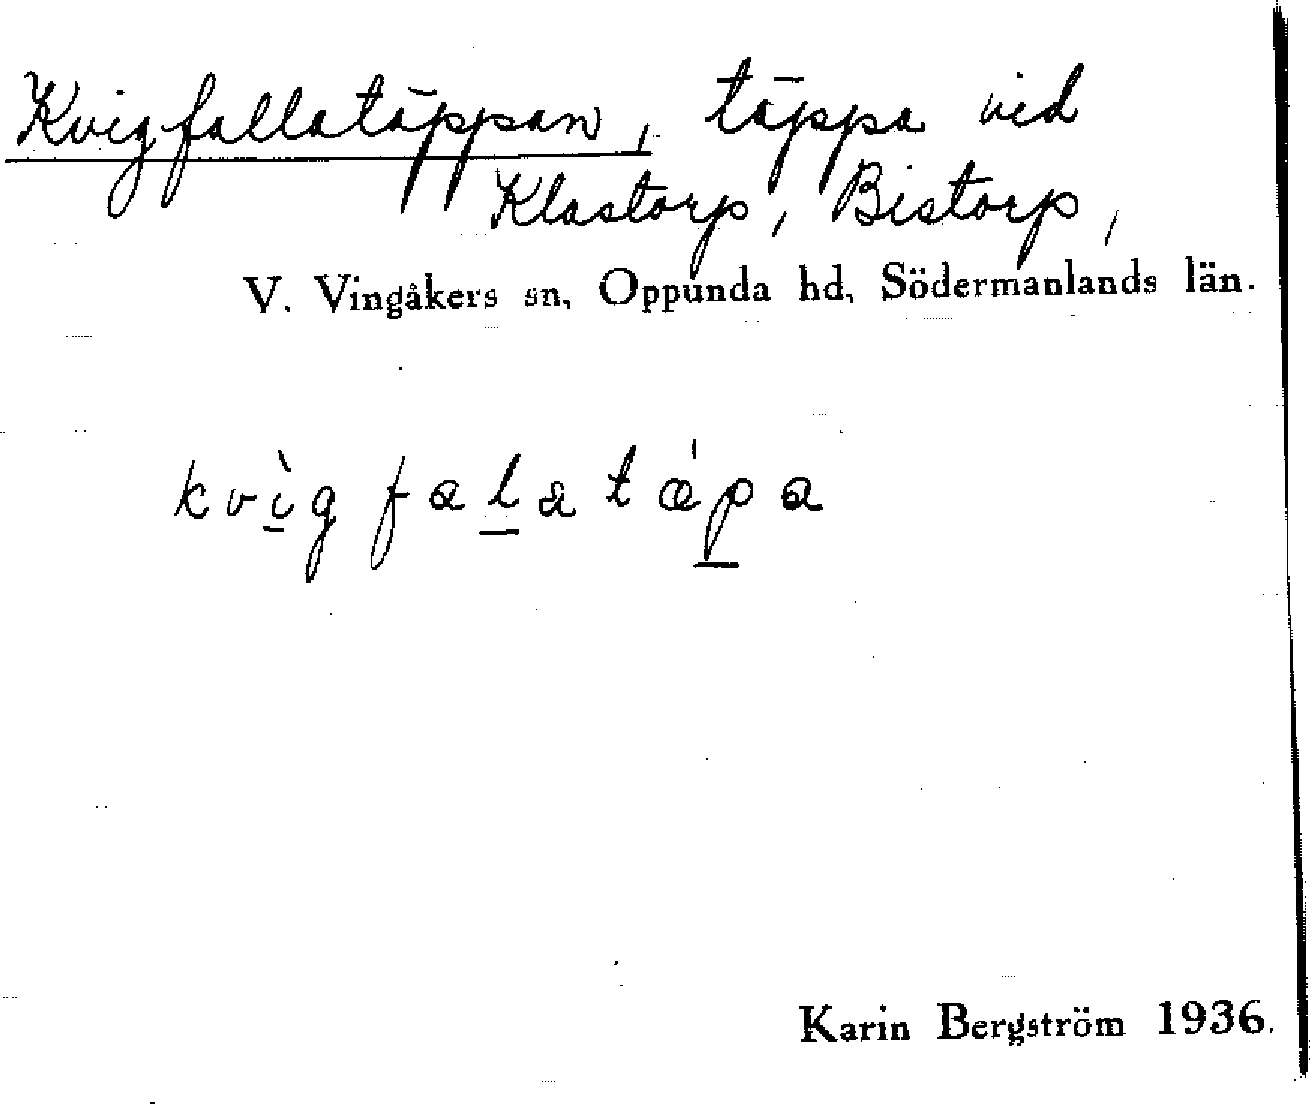 Kvigfallatäppan, täppa vid
Klastorp, Bistorp,
V. Vingåkers sn, Oppunda hd, Södermanlands län.
kvìg falatǽpa
Karin Bergström 1936.